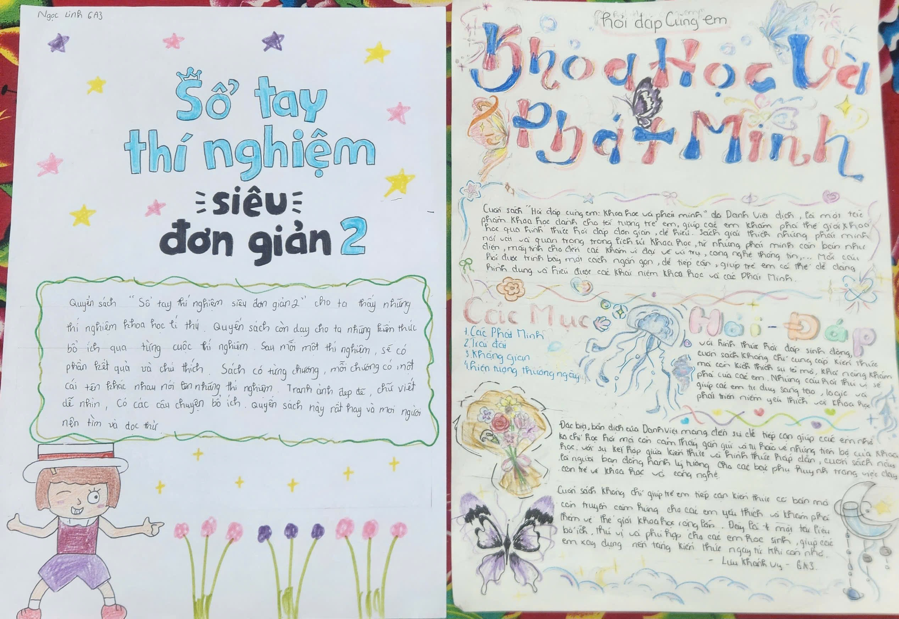 Ngọc Linh 6A3
Sổ tay
thí nghiệm
siêu
đơn giản 2
Quyển sách "Sổ tay thí nghiệm siêu đơn giản 2" cho ta thấy những
thí nghiệm khoa học lí thú. Quyển sách còn dạy cho ta những kiến thức
bổ ích qua từng cuộc thí nghiệm. Sau mỗi một thí nghiệm, sẽ có
phần kết quả và chú thích. Sách có từng chương, mỗi chương có một
cái tên khác nhau nói lên những thí nghiệm. Tranh ảnh đẹp đẽ, chữ viết
dễ nhìn, có các câu chuyện bổ ích. Quyển sách này rất hay và mọi người
nên tìm và đọc thử
Hỏi đáp cùng em
Khoa Học Và
Phát Minh
Cuốn sách "Hỏi đáp cùng em: Khoa học và phát minh" do Danh Việt dịch, là một tác
phẩm khoa học dành cho lứa tuổi trẻ em, giúp các em khám phá thế giới khoa
học qua hình thức hỏi đáp đơn giản, dễ hiểu. Sách giải thích những phát minh
nổi bật và quan trọng trong lịch sử khoa học, từ những phát minh căn bản như
điện, máy tính cho đến các khám vĩ đại về vũ trụ, công nghệ thông tin,... Mỗi câu
hỏi được trình bày một cách ngắn gọn, dễ tiếp cận, giúp trẻ em có thể dễ dàng
hình dung và hiểu được các khái niệm khoa học và các phát minh.
Các Mục
1. Các Phát Minh
2. Trái đất
3. Không gian
4. Hiện tượng thường ngày
Hỏi-Đáp
Với hình thức hỏi đáp sinh động,
cuốn sách không chỉ cung cấp kiến thức
mà còn kích thích sự tò mò, khả năng khám
phá của các em. Những câu hỏi thú vị sẽ
giúp các em tư duy sáng tạo, logic và
phát triển niềm yêu thích với khoa học
Đặc biệt, bản dịch của Danh Việt mang đến sự dễ tiếp cận giúp các em nhỏ
không chỉ học hỏi mà còn cảm thấy gần gũi và tự hào về những tiến bộ của khoa
học. Với sự kết hợp giữa kiến thức và hình thức hấp dẫn, cuốn sách này
là người bạn đồng hành lý tưởng cho các bậc phụ huynh trong việc dạy
con trẻ về khoa học và công nghệ.
Cuốn sách không chỉ giúp trẻ em tiếp cận kiến thức cơ bản mà
còn truyền cảm hứng cho các em yêu thích và khám phá
thêm về thế giới khoa học rộng lớn. Đây là 1 một tài liệu
bổ ích, thú vị và phù hợp cho các em học sinh, giúp các
em xây dựng nền tảng kiến thức ngay từ khi còn nhỏ.
- Lưu Khánh Vy - 6A3.